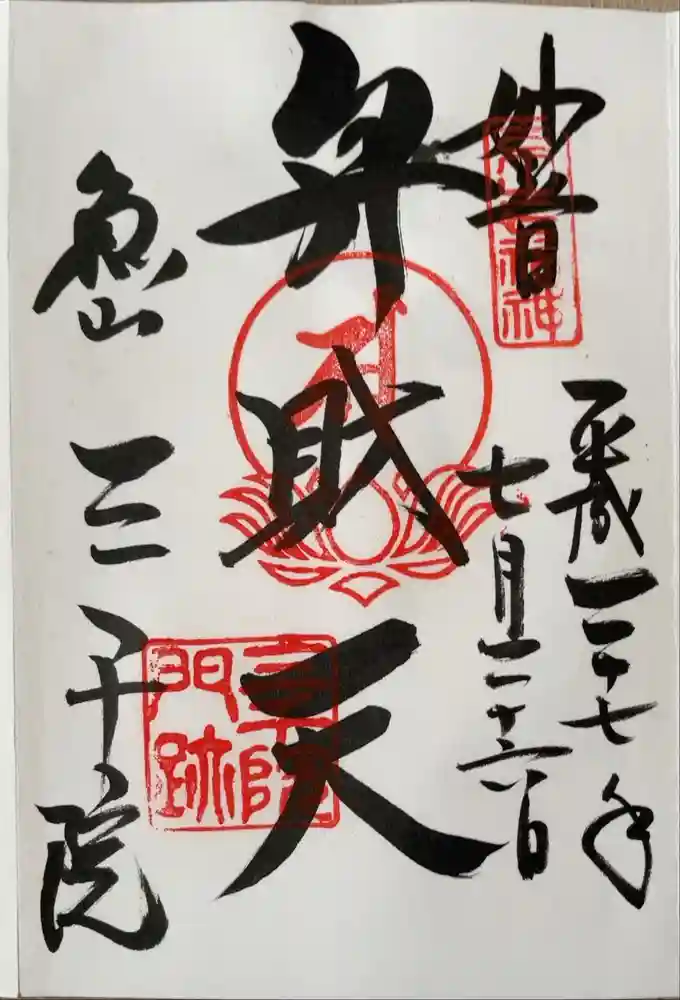 妙音
平成二十七年
七月二十六日
弁財天
魚山 三千院
三千院
門跡